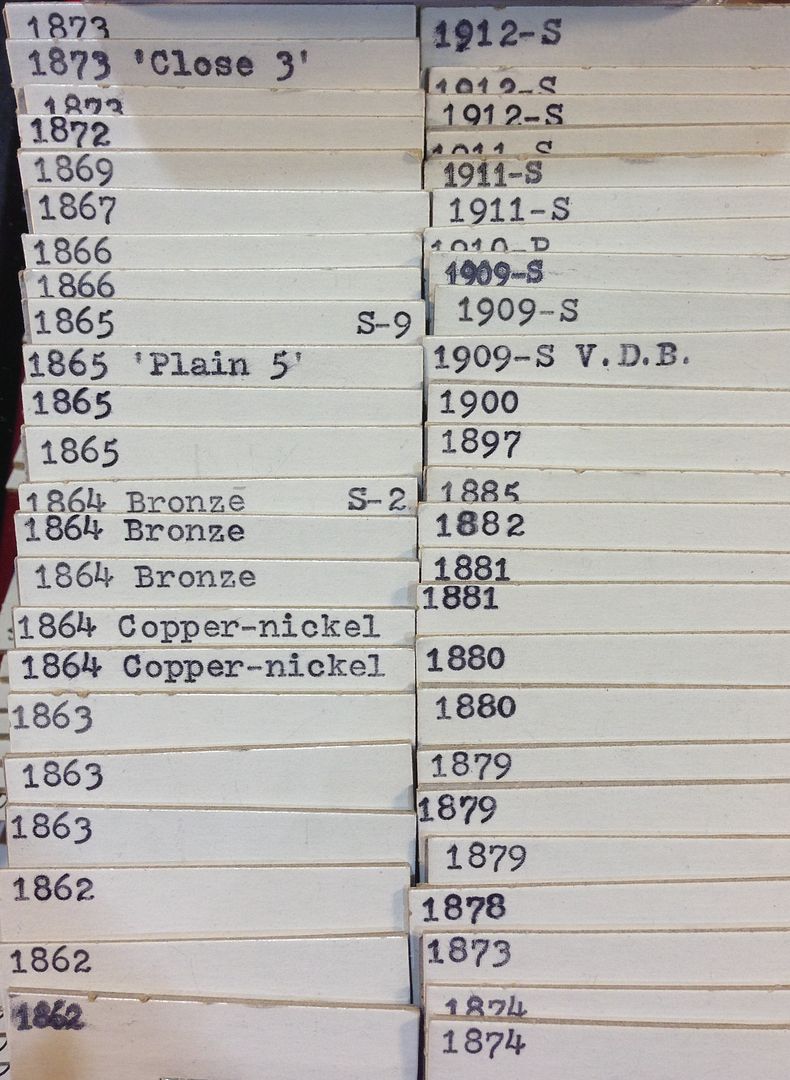 1873
1873 'Close 3'
1873
1872
1869
1867
1866
1866
1865 S-9
1865 'Plain 5'
1865
1865
1864 Bronze S-2
1864 Bronze
1864 Bronze
1864 Copper-nickel
1864 Copper-nickel
1863
1863
1863
1862
1862
1862
1912-S
1912-S
1912-S
1911-S
1911-S
1911-S
1909-S
1909-S
1909-S V.D.B.
1900
1897
1885
1882
1881
1881
1880
1880
1879
1879
1879
1878
1873
1874
1874